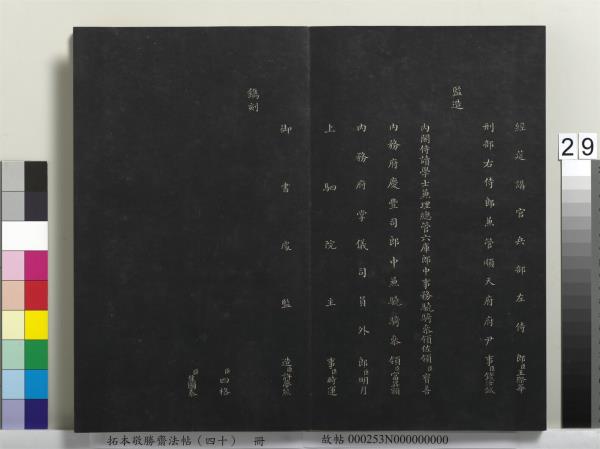 經筵講官兵部左侍郎臣王際華
刑部右侍郎兼管順天府府尹事臣錢汝誠
監造
內閣侍讀學士兼理總管六庫郎中事務驍騎參領佐領臣
內務府慶豐司郎中兼驍騎參領臣
內務府掌儀司員外郎臣明月
上駟院主事臣時運
御書處監造臣
鐫刻
臣四格
臣
29
拓本敬勝齋法帖(四十) 冊
故帖 000253N000000000